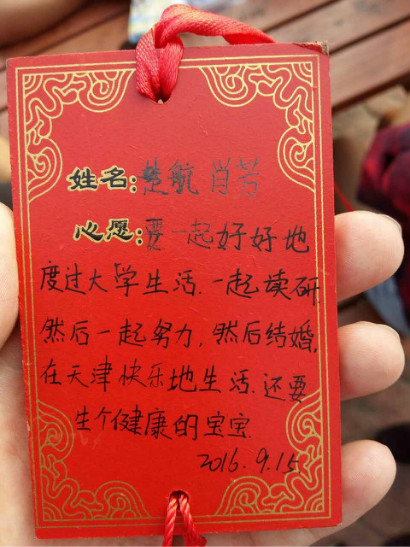 姓名:楚航 肖芳
心愿:要一起好好地
度过大学生活.一起读研
然后一起努力,然后结婚,
在天津快乐地生活.还要
生个健康的宝宝
2016.9.15